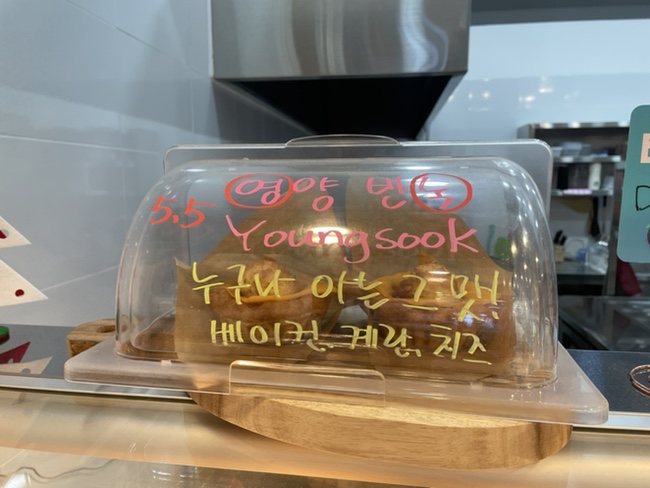 영양 반숙
5.5
Youngsook
누구나 아는 그 맛!
베이컨, 계란, 치즈